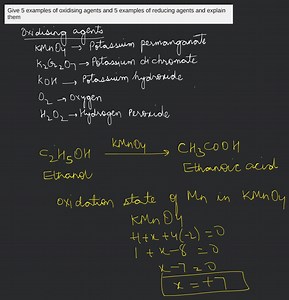 Give 5 examples of oxidising agents and 5 examples of reducing agents and explain
them
Oxidising agents
KMnO4 → Potassium permanganate
K2Cr2O7 → Potassium dichromate
KOH → Potassium hydroxide
O2 → Oxygen
H2O2 → Hydrogen Peroxide
C2H5OH KMnO4 → CH3COOH
Ethanol Ethanoic acid
Oxidation state of Mn in KMnO4
KMnO4
+1+x+4(-2)=0
1+x-8=0
x-7=0
x=+7